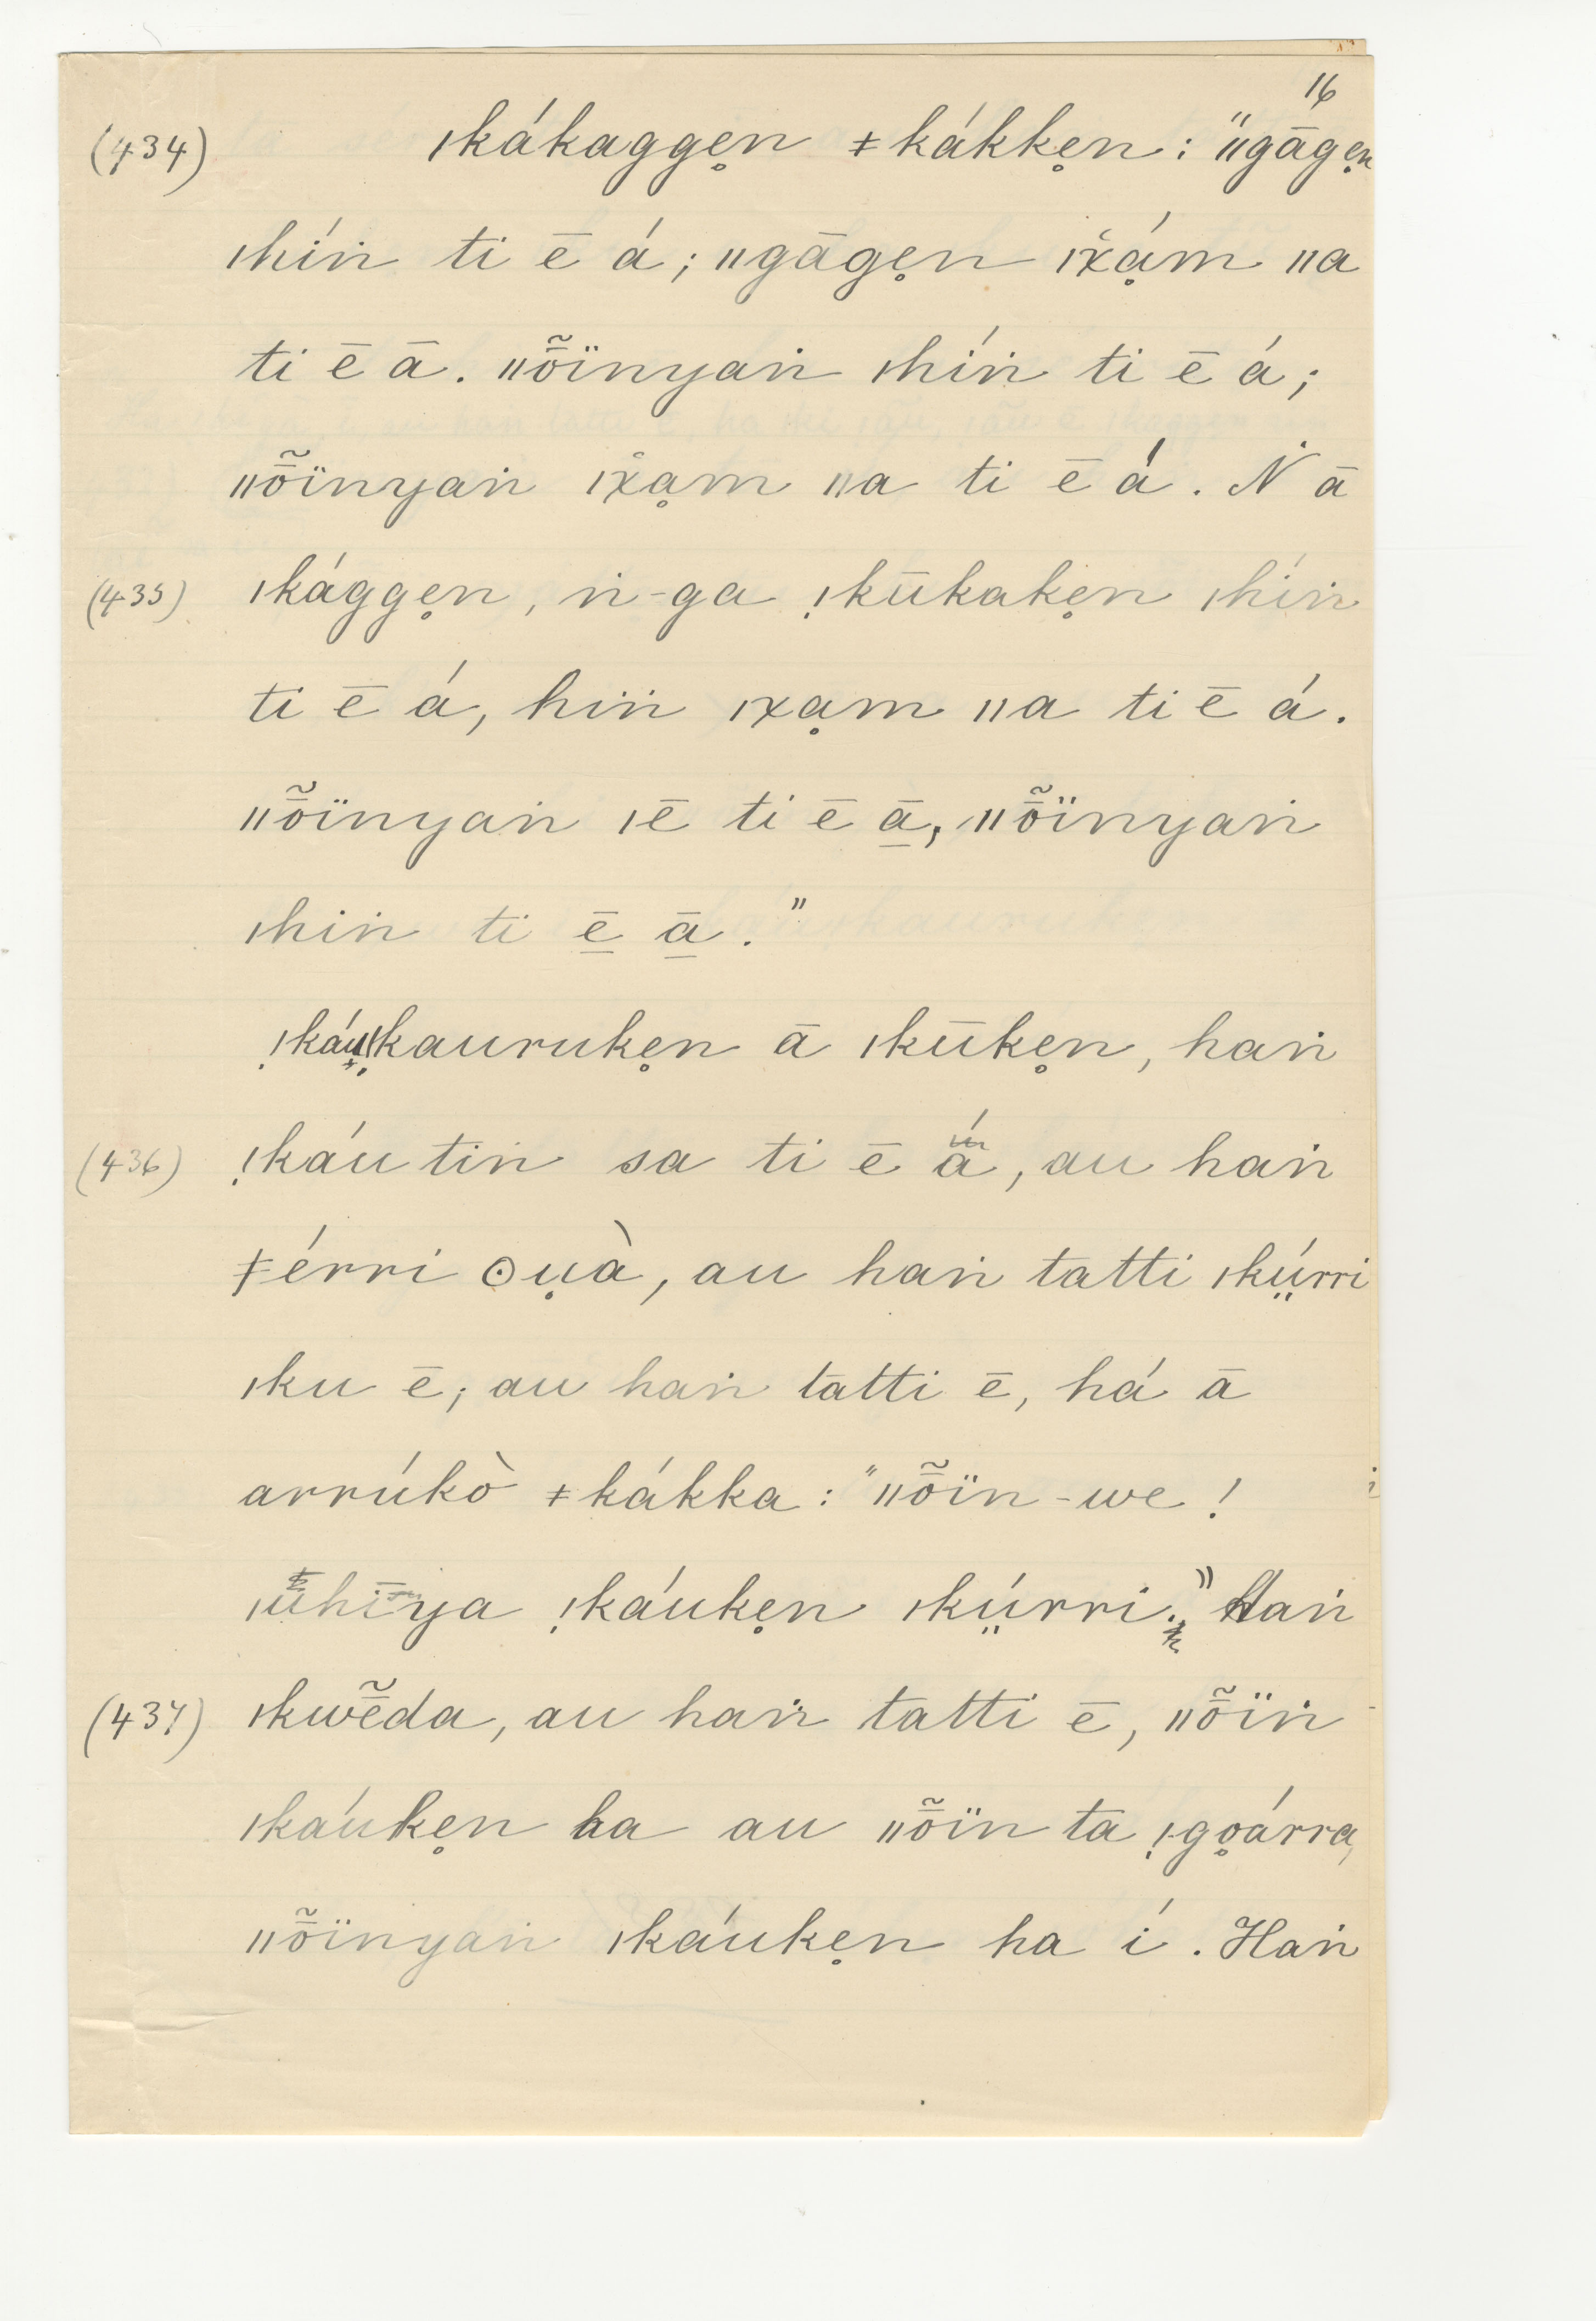 16
(434) ǀkákaggen̥ ǂkákken̥ : "ǁgāgen̥
ǀhíṅ ti ē á ; ǁgāgen̥ ǀx̌ạ́m ǁa
ti ē ā . ǁȭïnyaṅ ǀhíṅ ti ē á ;
ǁȭïnyaṅ ǀx̌ạm ǁa ti ē á . Ṅ ā
(435) ǀkággen̥ , ṅ-ga ǃkūkaken̥ ǀhíṅ
ti ē á , hiṅ ǀxạm ǁa ti ē á .
ǁȭïnyaṅ ǀē ti ē ā̱ , ǁȭïnyaṅ
ǀhiṅ ti ē̱ ā̱ . "
ǃkáuǃkauruken̥ ā ǀkūken̥ , haṅ
(436) ǃkáu tiṅ sa ti ē á , au haṅ
ǂérri ʘụà , au haṅ tatti ǀkṳ́rri
ǀku ē ; au haṅ tatti ē , há ā
arrúkò ǂkákka : "ǁȭïn-we !
ǀūhīya ǃkáuken̥ ǀkṳ́rri . " Haṅ
(437) ǀkwẽ̄da , au haṅ tatti ē , ǁȭïṅ
ǀkáuken̥ ha au ǁȭïn ta ǃgo̥árra ,
ǁȭïnyaṅ ǀkáuken̥ ha í . Haṅ